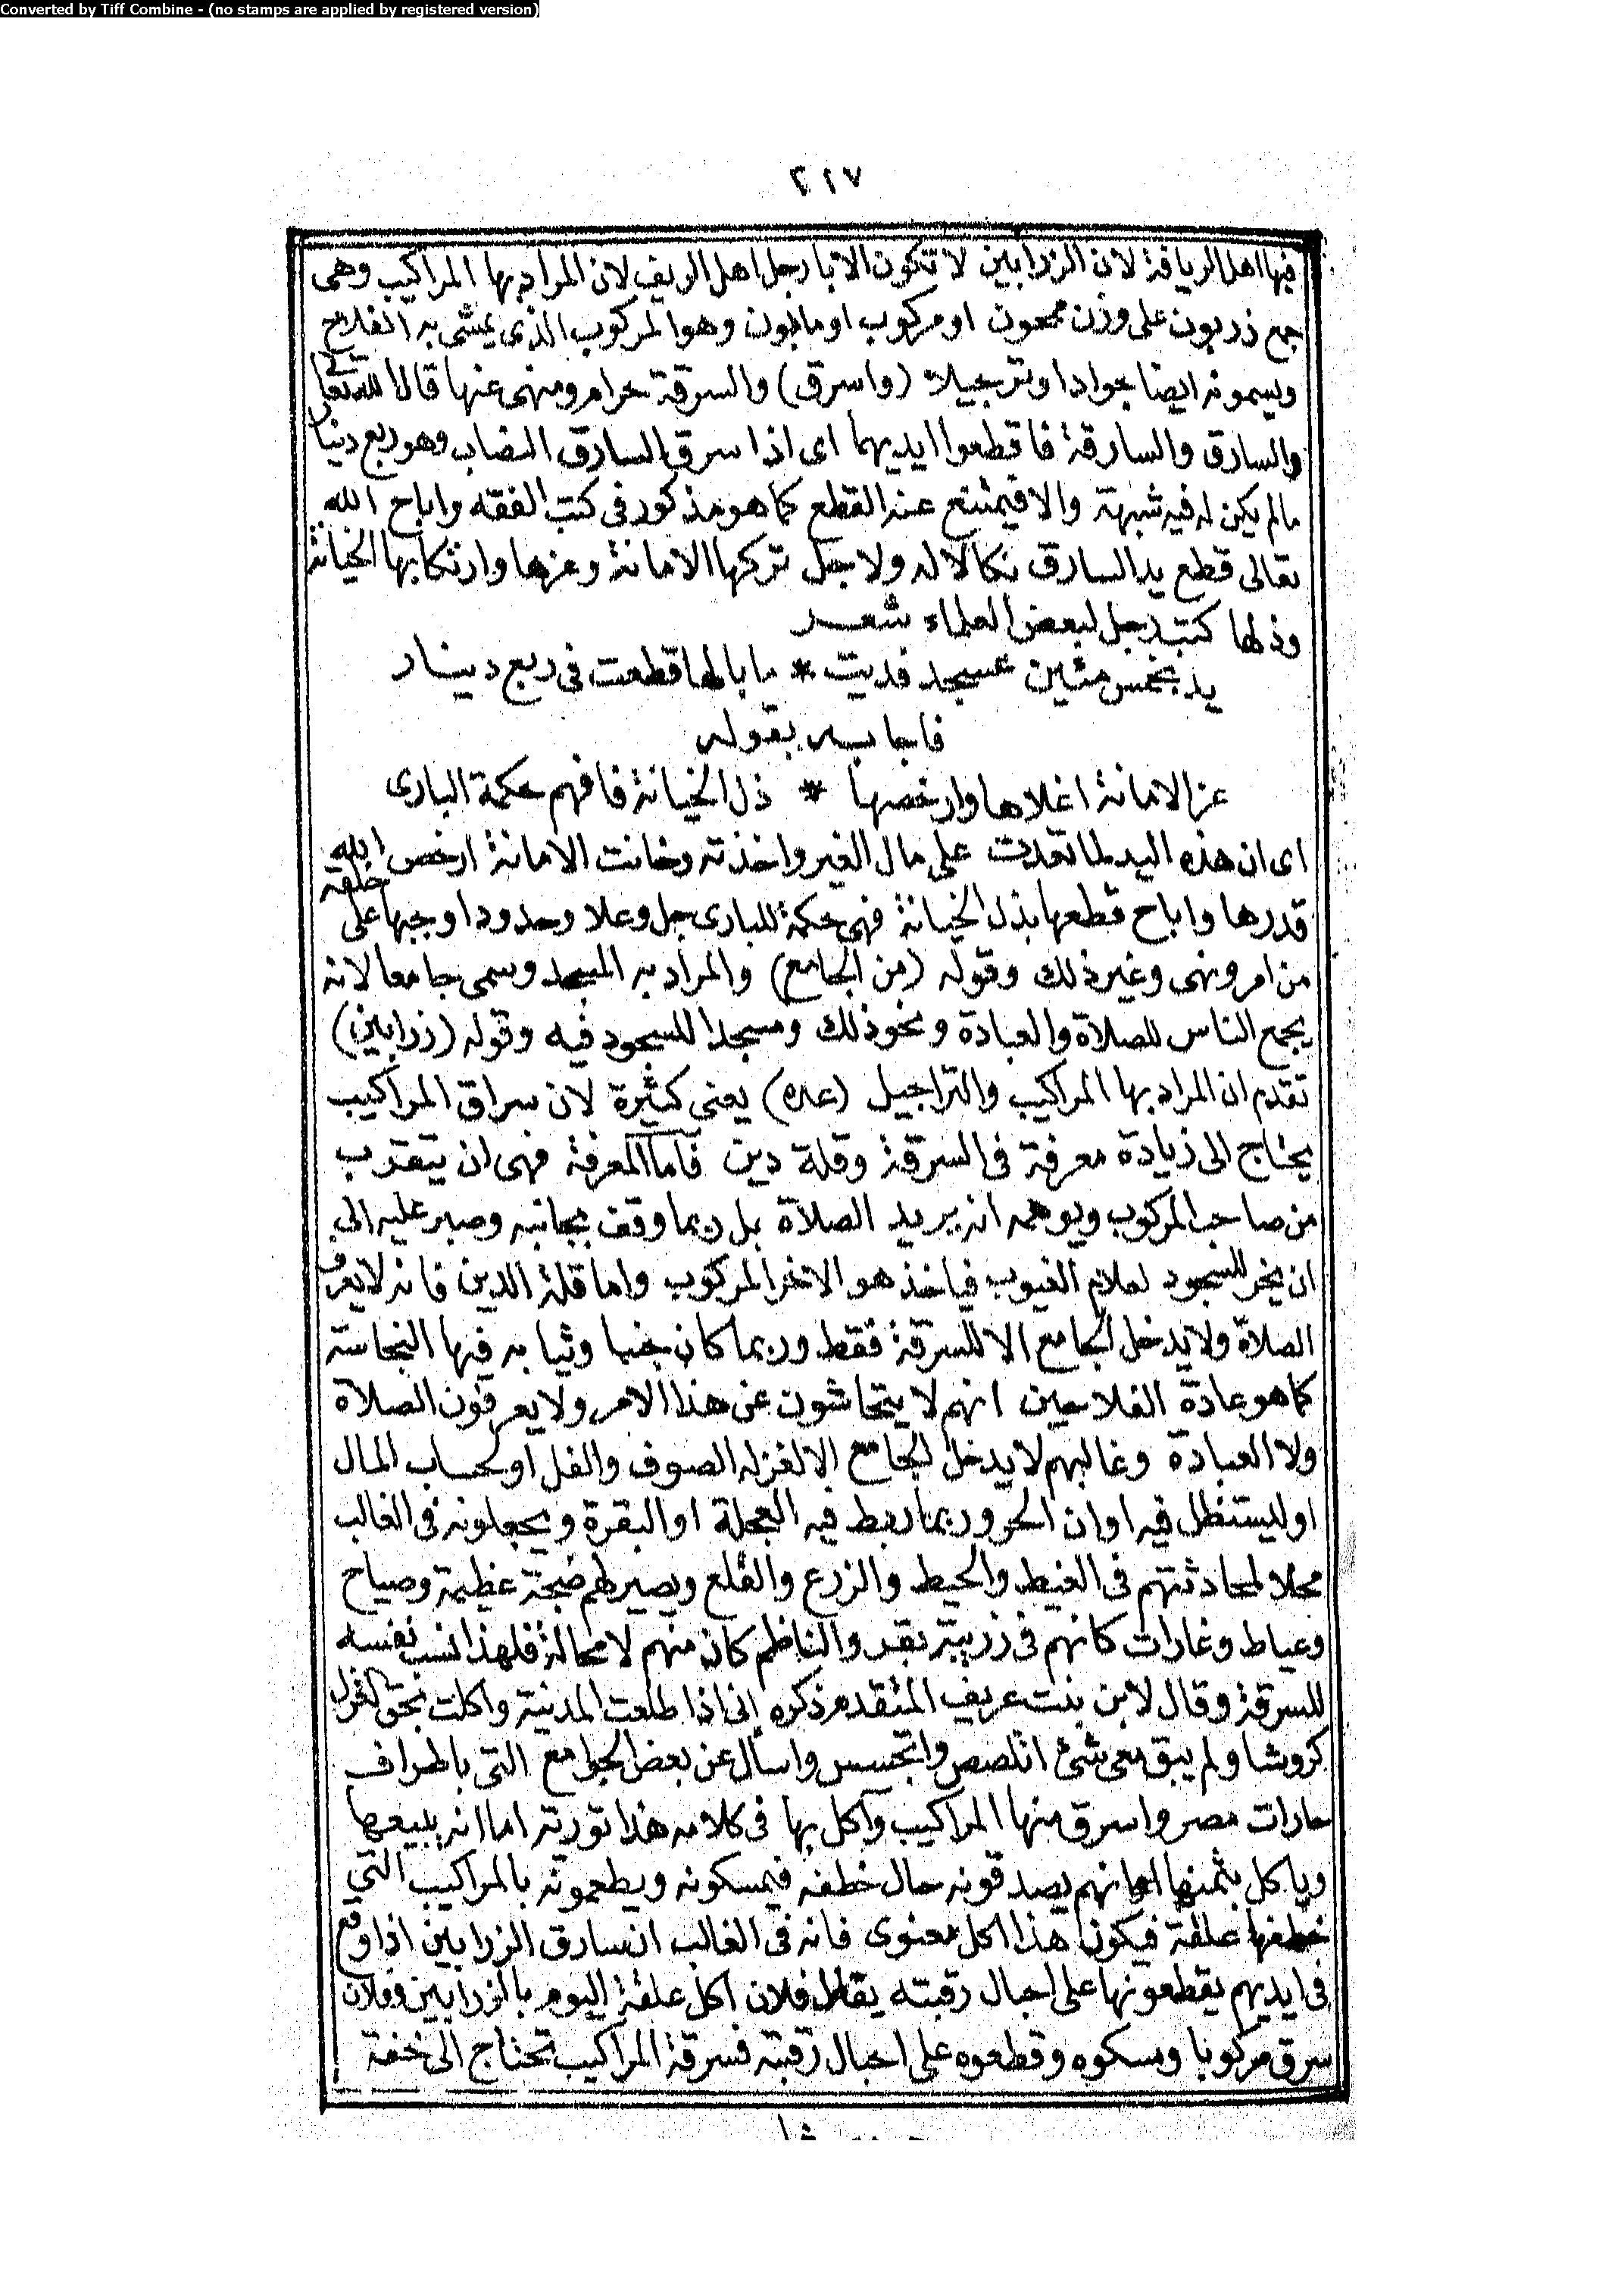 Converted by Tiff Combine - (no stamps are applied by registered version)
٢١٧
فيها اهل الريافة لان الزرابين لا تكون الا بارجل اهل الريف لان المراد بها المراكيب وهى
جمع زربون على وزن مجعون او مركوب او مابون وهو المركوب الذى يمشى به الفلاح
ويسمونه ايضا جوادا وترجيلا (واسرق) والسرقة حرام ومنهى عنها قال الله تعالى
والسارق والسارقة فاقطعوا ايديهما اى اذا سرق السارق النصاب وهو ربع دينار
مالم يكن له فيه شبهة والا فيمتنع عنه القطع كما هو مذكور فى كتب الفقه واباح الله
تعالى قطع يد السارق نكالا له ولاجل تركها الامانة وعزها وارتكابها الخيانة
وذلها كتب رجل لبعض العلماء شعر
يد بخمس مئين عسجد فديت * ما بالها قطعت فى ربع دينار
فاجابه بقوله
عز الامانة اغلاها وارخصها * ذل الخيانة فافهم حكمة البارى
اى ان هذه اليد لما تعدت على مال الغير واخذته وخانت الامانة ارخص الله
قدرها واباح قطعها بذل الخيانة فهى حكمة للبارى جل وعلا وحدود اوجبها على خلقه
من امر ونهى وغير ذلك وقوله (من الجامع) والمراد به المسجد وسمى جامعا لانه
يجمع الناس للصلاة والعبادة ونحو ذلك ومسجدا للسجود فيه وقوله (زرابين)
تقدم ان المراد بها المراكيب والتراجيل (عده) يعنى كثيرة لان سراق المراكيب
يحتاج الى زيادة معرفة فى السرقة وقلة دين فاما المعرفة فهى ان يتقرب
من صاحب المركوب ويوهمه انه يريد الصلاة بل ربما وقف بجانبه وصبر عليه الى
ان يخر للسجود لعلام الغيوب فياخذ هو الاخر المركوب واما قلة الدين فانه لا يعرف
الصلاة ولا يدخل الجامع الا للسرقة فقط وربما كان جنبا وثيابه فيها النجاسة
كما هو عادة الفلاحين انهم لا يتحاشون عن هذا الامر ولا يعرفون الصلاة
ولا العبادة وغالبهم لا يدخل الجامع الا لغزله الصوف والفل او لحساب المال
او ليستظل فيه اوان الحر وربما ربط فيه العجلة او البقرة ويجعلونه فى الغالب
محلا لمحادثتهم فى الغيط والحيط والزرع والقلع ويصير لهم ضجة عظيمة وصياح
وعياط وغارات كانهم فى زريبة بقر والناظم كان منهم لا محالة فلهذا نسب نفسه
للسرقة وقال لابن بنت عريف المتقدم ذكره انى اذا طلعت المدينة واكلت بحق الغزل
كروشا ولم يبق معى شئ اتلصص واتجسس واسال عن بعض الجوامع التى باطراف
حارات مصر واسرق منها المراكيب وآكل بها فى كلامه هذا تورية اما انه يبيعها
وياكل بثمنها انهم يصدقونه حال خطفه فيمسكونه ويطعمونه بالمراكيب التى
خطفها علقة فيكون هذا اكل معنوى فانه فى الغالب ان سارق الزرابين اذا وقع
فى ايديهم يقطعونها على احبال رقبته يقال فلان اكل علقة اليوم بالزرابين وفلان
سرق مركوبا ومسكوه وقطعوه على احبال رقبته فسرقة المراكيب تحتاج الى خفة